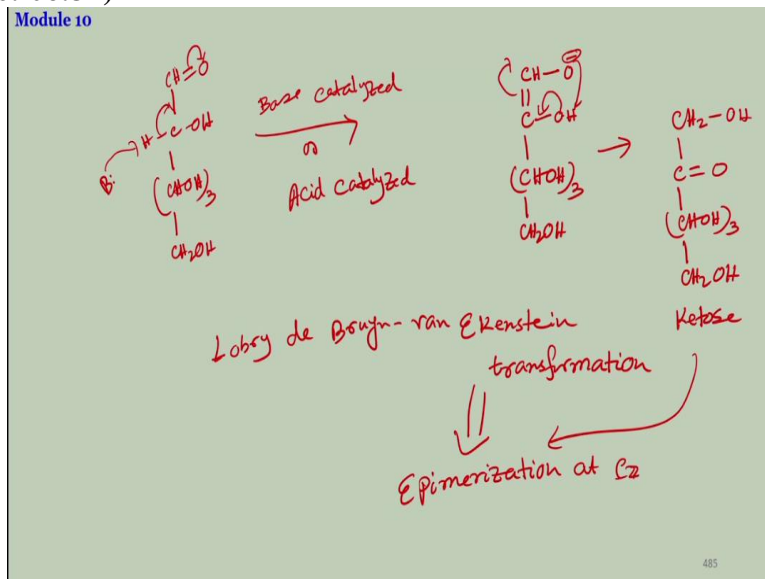 Module 10
CH=O
H-C-OH
B:
(CHOH)3
CH2OH
Base catalyzed
or
Acid catalyzed
CH-O
C-OH
(CHOH)3
CH2OH
CH2-OH
C=O
(CHOH)3
CH2OH
Ketose
Lobry de Bruyn-van Ekenstein
transformation
Epimerization at C2
485